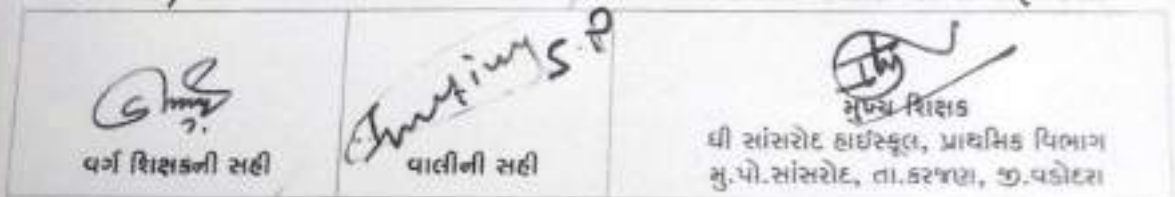 S.P
વર્ગ શિક્ષકની સહી
વાલીની સહી
મુખ્ય શિક્ષક
ધી સાંસરોદ હાઈસ્કૂલ, પ્રાથમિક વિભાગ
મુ.પો.સાંસરોદ, તા.કરજણ, જી.વડોદરા